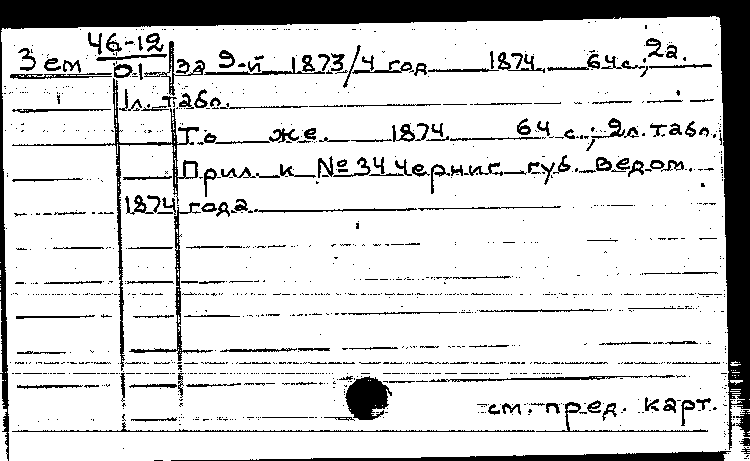 Зем 46-12
01 за 9-й 1873/4 год 1874. 64 с.; 2 л.
1 л. табл.
То же. 1874. 64 с.; 2 л. табл.
Прил. к № 34 Черниг. губ. ведом.
1874 года.
см. пред. карт.